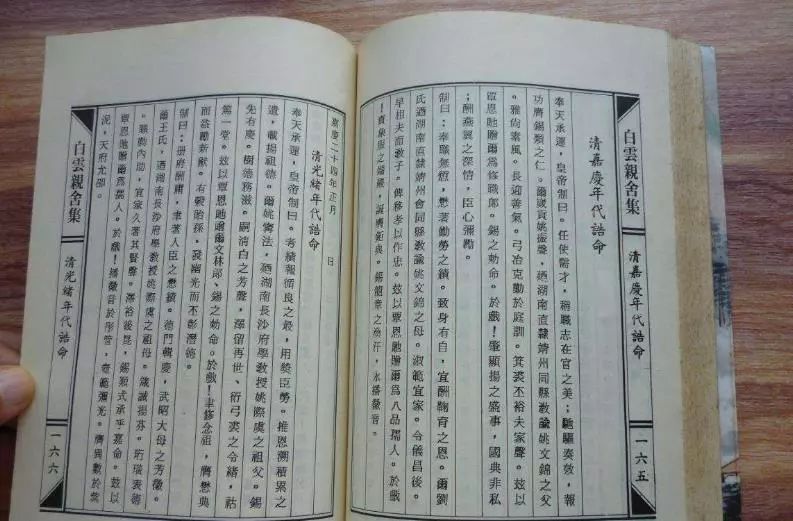 白雲親舍集
清嘉慶年代誥命
一六五
清嘉慶年代誥命
奉天承運，皇帝制曰。任使需才，稱職志在官之美；馳驅奏效，報
功膺錫類之仁。爾歲貢姚振聲，迺湖南直隸靖州同縣教諭姚文錦之父
。雅尚素風。長迎善氣。弓冶克勤於庭訓。箕裘不裕夫家聲。茲以
覃恩貤贈爾爲修職郎。錫之勅命。於戲！肇顯揚之盛事，國典非私
；酬燕翼之深情，臣心彌勵。
制曰：奉職無愆，懋著勤勞之績。致身有自，宜酬鞠育之恩。爾劉
氏迺湖南直隸靖州會同縣教諭姚文錦之母。淑範宜家。令儀昌後。
早相夫而教子。俾移孝以作忠。茲以覃恩貤贈爾爲八品孺人。於戲
！賁象服之端嚴，誕膺鉅典。錫龍章之渙汗，永播徽音。
嘉慶二十四年正月 日
清光緒年代誥命
奉天承運，皇帝制曰。考績報循良之最，用獎臣勞。推恩溯積累之
遺，載揚祖德。爾姚寄法，迺湖南長沙府學教授姚際虞之祖父。錫
先有慶。樹德務滋。嗣清白之芳聲，澤留再世、衍弓裘之令緒，祜
篤一堂。茲以覃恩貤贈爾文林郎、錫之勅命。於戲！聿修念祖，膺懋典
而益勵新猷。有穀貽孫，發幽光而丕彰潛德。
制曰：冊府酬庸，聿著人臣之懋績。德門輯慶，式昭大母之芳徽。
爾王氏，迺湖南長沙府學教授姚際虞之祖母。箴誡揚芬。珩璜表德
。職勤內助，宜家久著其賢聲。澤裕後昆，錫類式承乎嘉命。茲以
覃恩貤贈爾爲孺人。於戲！播徽音於彤管，壼範彌光。膺異數於紫
泥，天府允卲。
白雲親舍集
清光緒年代誥命
一六六